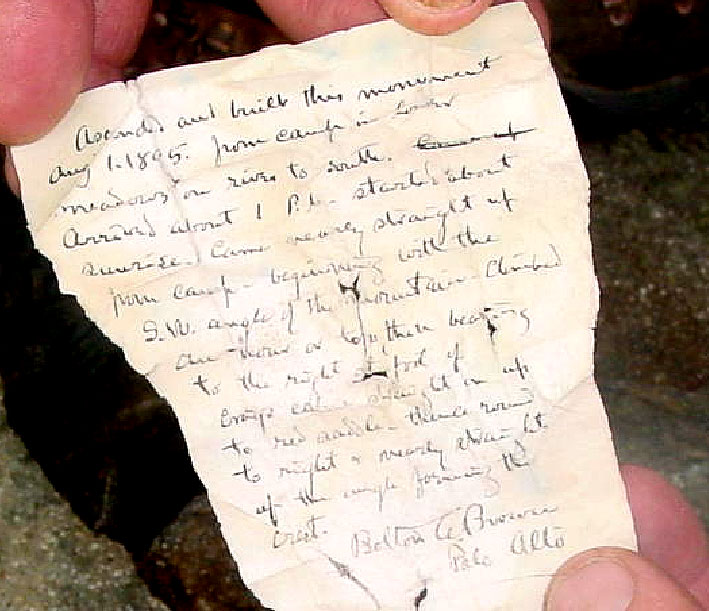 Ascended and built this monument
Aug 1. 1895. from camp in lower
meadows on river to south.
Arrived about 1 P.M. started about
sunrise. Came nearly straight up
from camp - beginning with the
S.W. angle of the mountain. Climbed
an hour or so, then bearing
to the right foot of
came straight on up
to red saddle - thence round
to right & nearly straight
up the angle forming the
crest. Bolton C Brown
Palo Alto